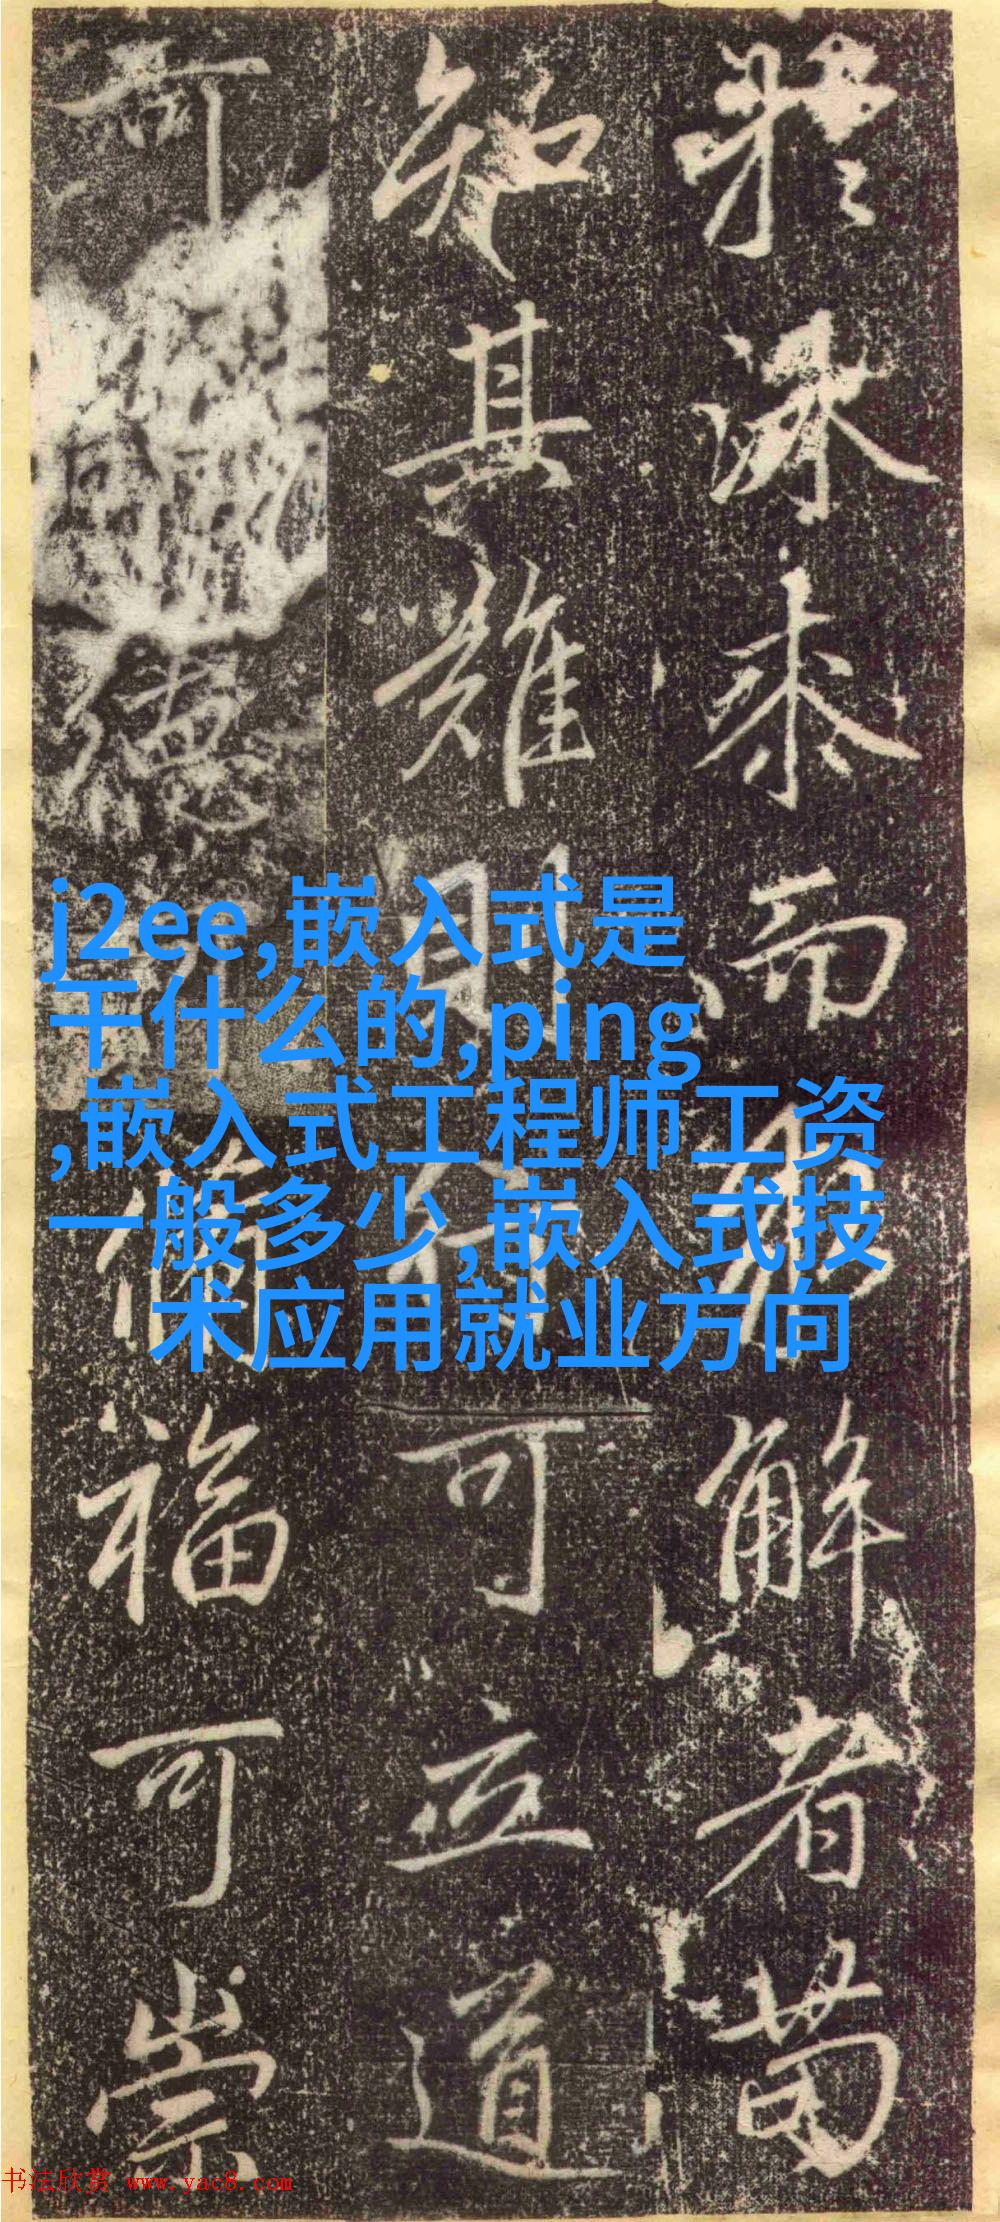 而解者苟
知其難則行可立道
可德備福可崇
j2ee,嵌入式是
干什么的,ping
,嵌入式工程师工资
一般多少,嵌入式技
术应用就业方向
书法欣赏 www.yac8.com